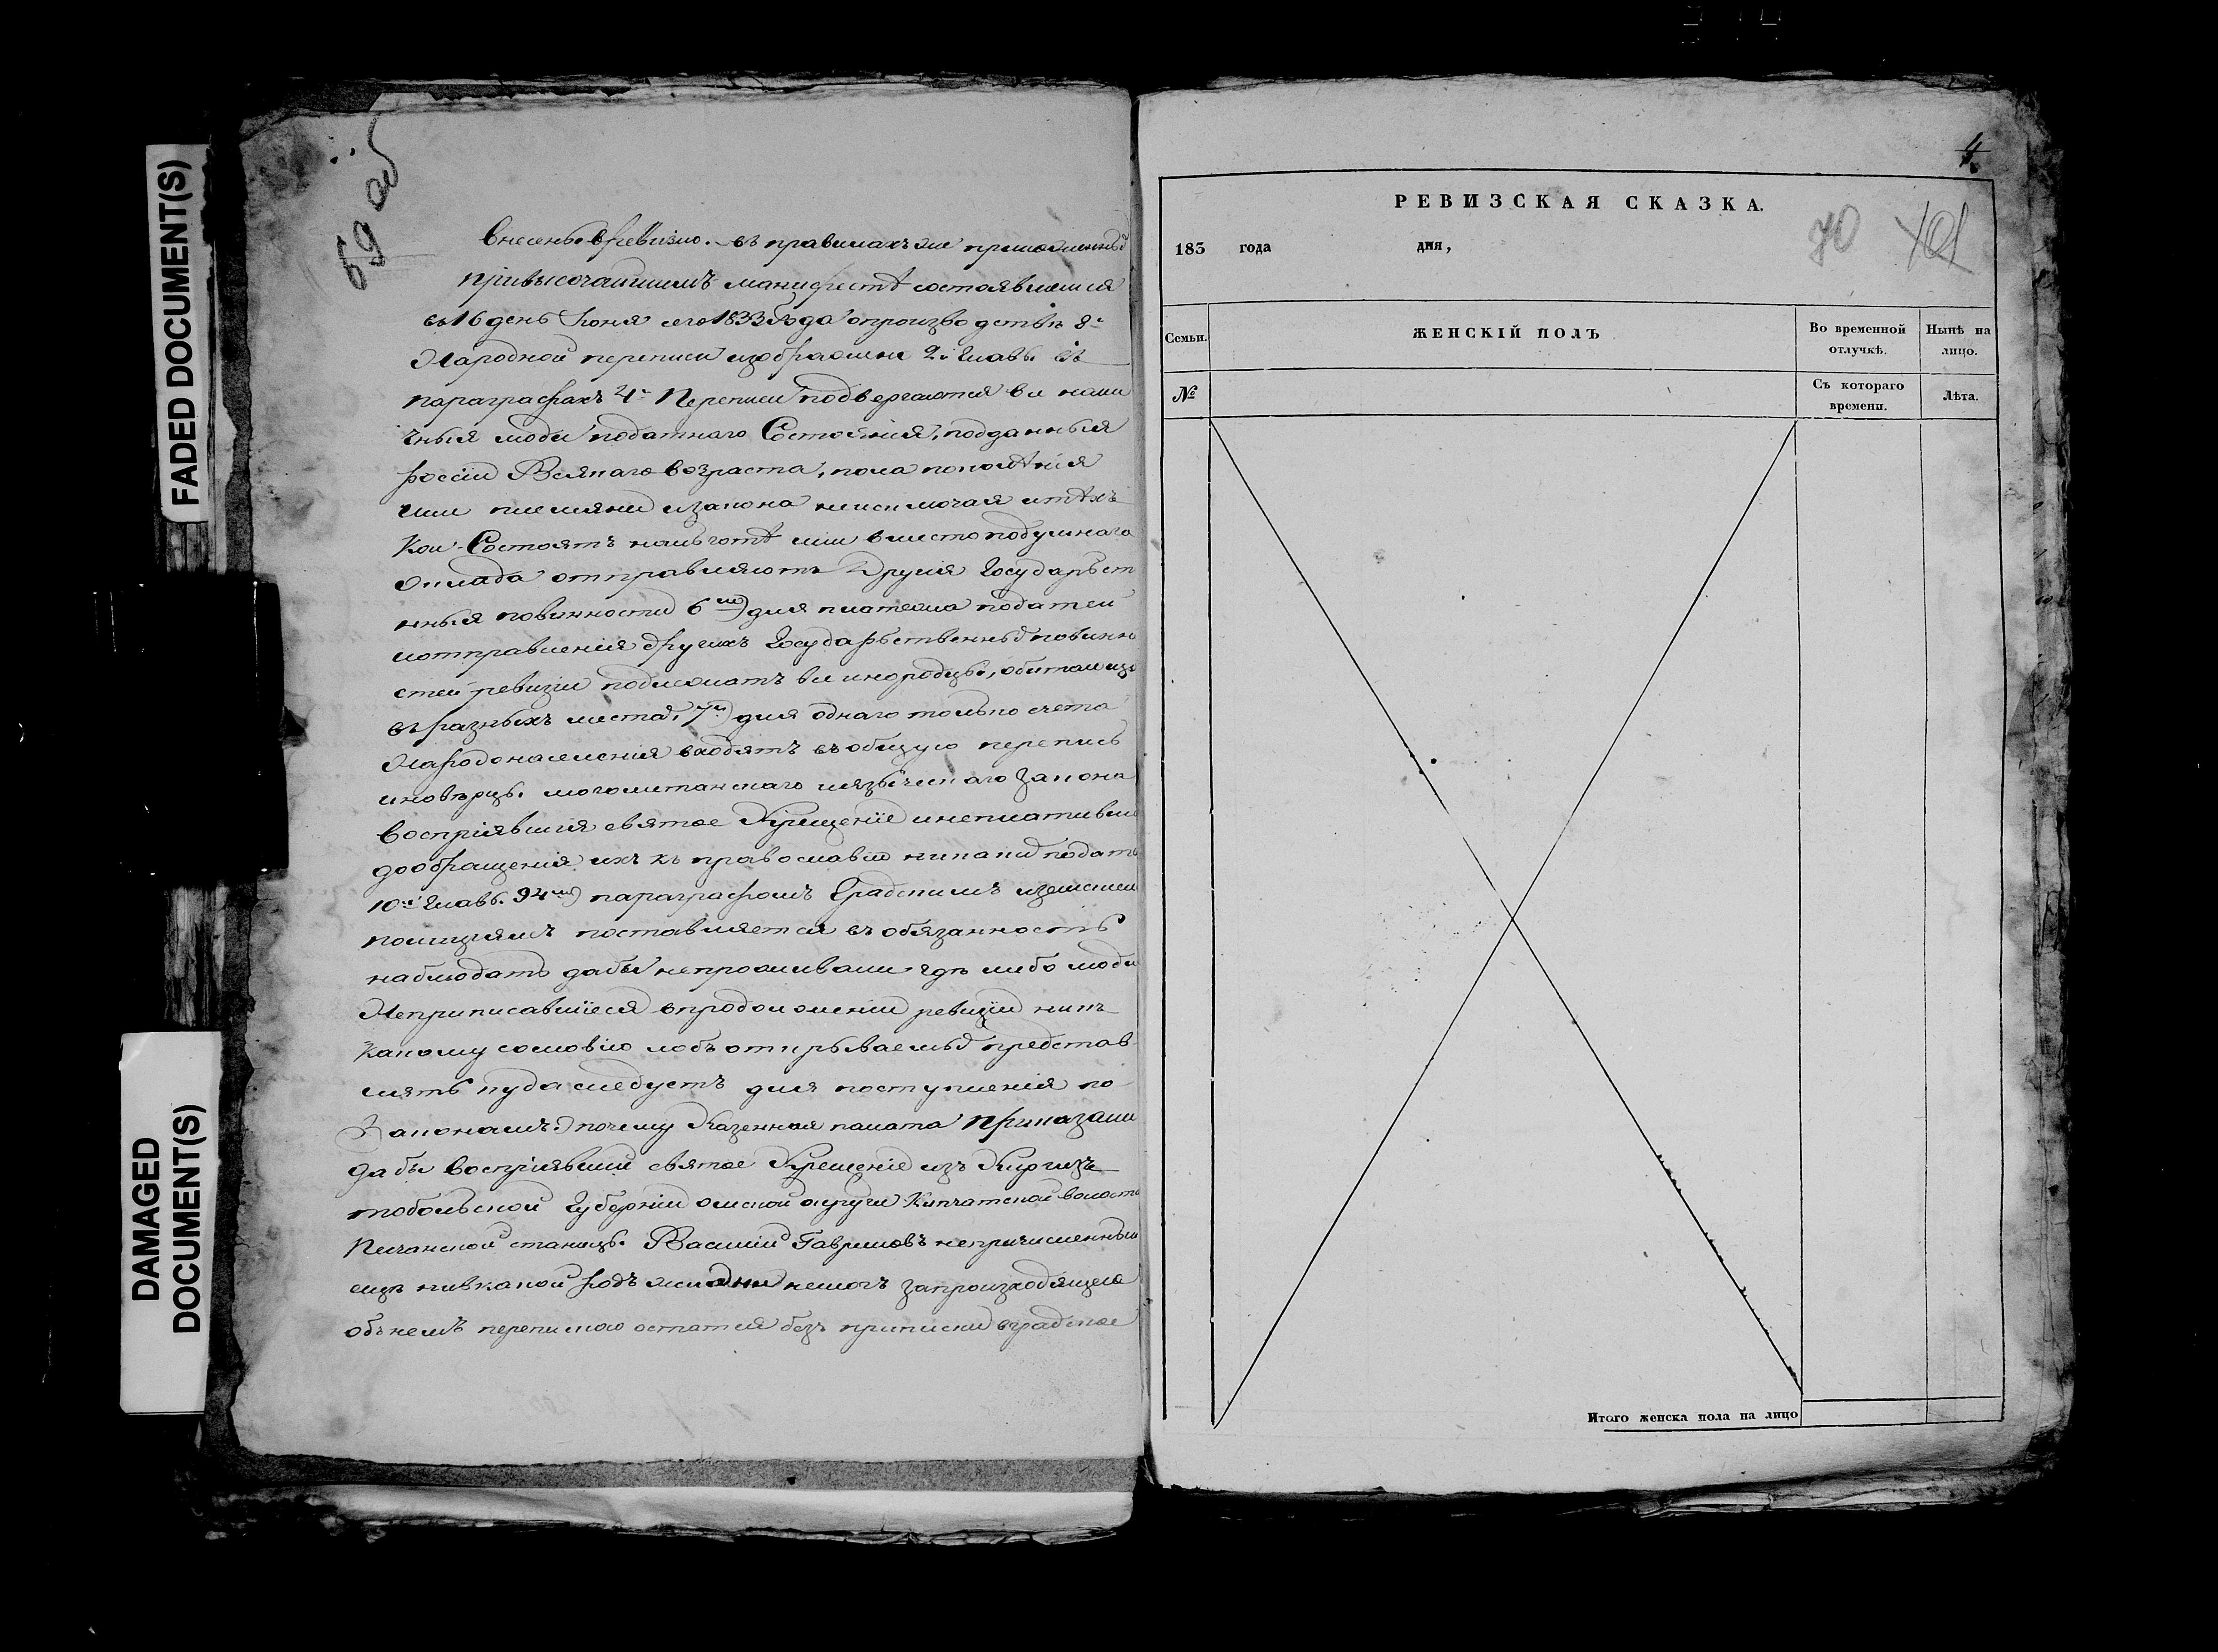 FADED DOCUMENT(S)
DAMAGED
DOCUMENT(S)
69 об
внесены вревизию. въ правилахъ же приложенныхъ
привысочайшемъ манифестѣ состоявшемся
въ 16 день Іюня сего 1833 года опроизводствѣ 8й
Народной переписи изображено 2й Главы въ
параграфахъ 4й Переписи подвергаются все налич
ныя люди податнаго Состоянія, подданныя
россіи Всякаго возраста, пола поколѣнія
или племяни изакона неисключая итѣхъ
Кои Состоятъ нальготѣ или вместо подушнаго
оклада отправляютъ Другія Государьствен
ныя повинности 6й) для платежа податей
иотправленія другихъ Государьственныхъ повинно
стей ревизіи подлежатъ все инородцы, обитающіе
въ разныхъ местахъ, 7й) для однаго только счета
Народонаселенія входятъ въ общую перепись
иноверцы. могометанскаго иязыческаго Закона
воспріявшія святое Крещеніе инеплатившіе
дообращенія ихъ къ православію никакихъ податей
10й Главы. 94мъ) параграфомъ Градскимъ иземскимъ
полиціямъ поставляется въ обязанность
наблюдать дабы непроживали где либо люди
Неприписавшіеся впродолженіи ревизіи никъ
Какому сословію ибо открываемыхъ представ
лять куда следуетъ для поступленія по
Законамъ) почему Казенная палата Приказали
дабы воспріявшій святое Крещеніе изъ Киргизъ
тобольской Губерніи омской округи Кипчатской волости
Печанской станицы. Василій Гавриловъ непричисленный
еще нивкакой родъ жизни немогъ запроизходящею
объ немъ перепискою остатся безъ приписки вградское
4
РЕВИЗСКАЯ СКАЗКА.
183 года дня,
70 101
Семьи. ЖЕНСКІЙ ПОЛЪ Во временной отлучкѣ. Нынѣ на лицо.
№ Съ котораго времени. Лѣта.
Итого женска пола на лицо